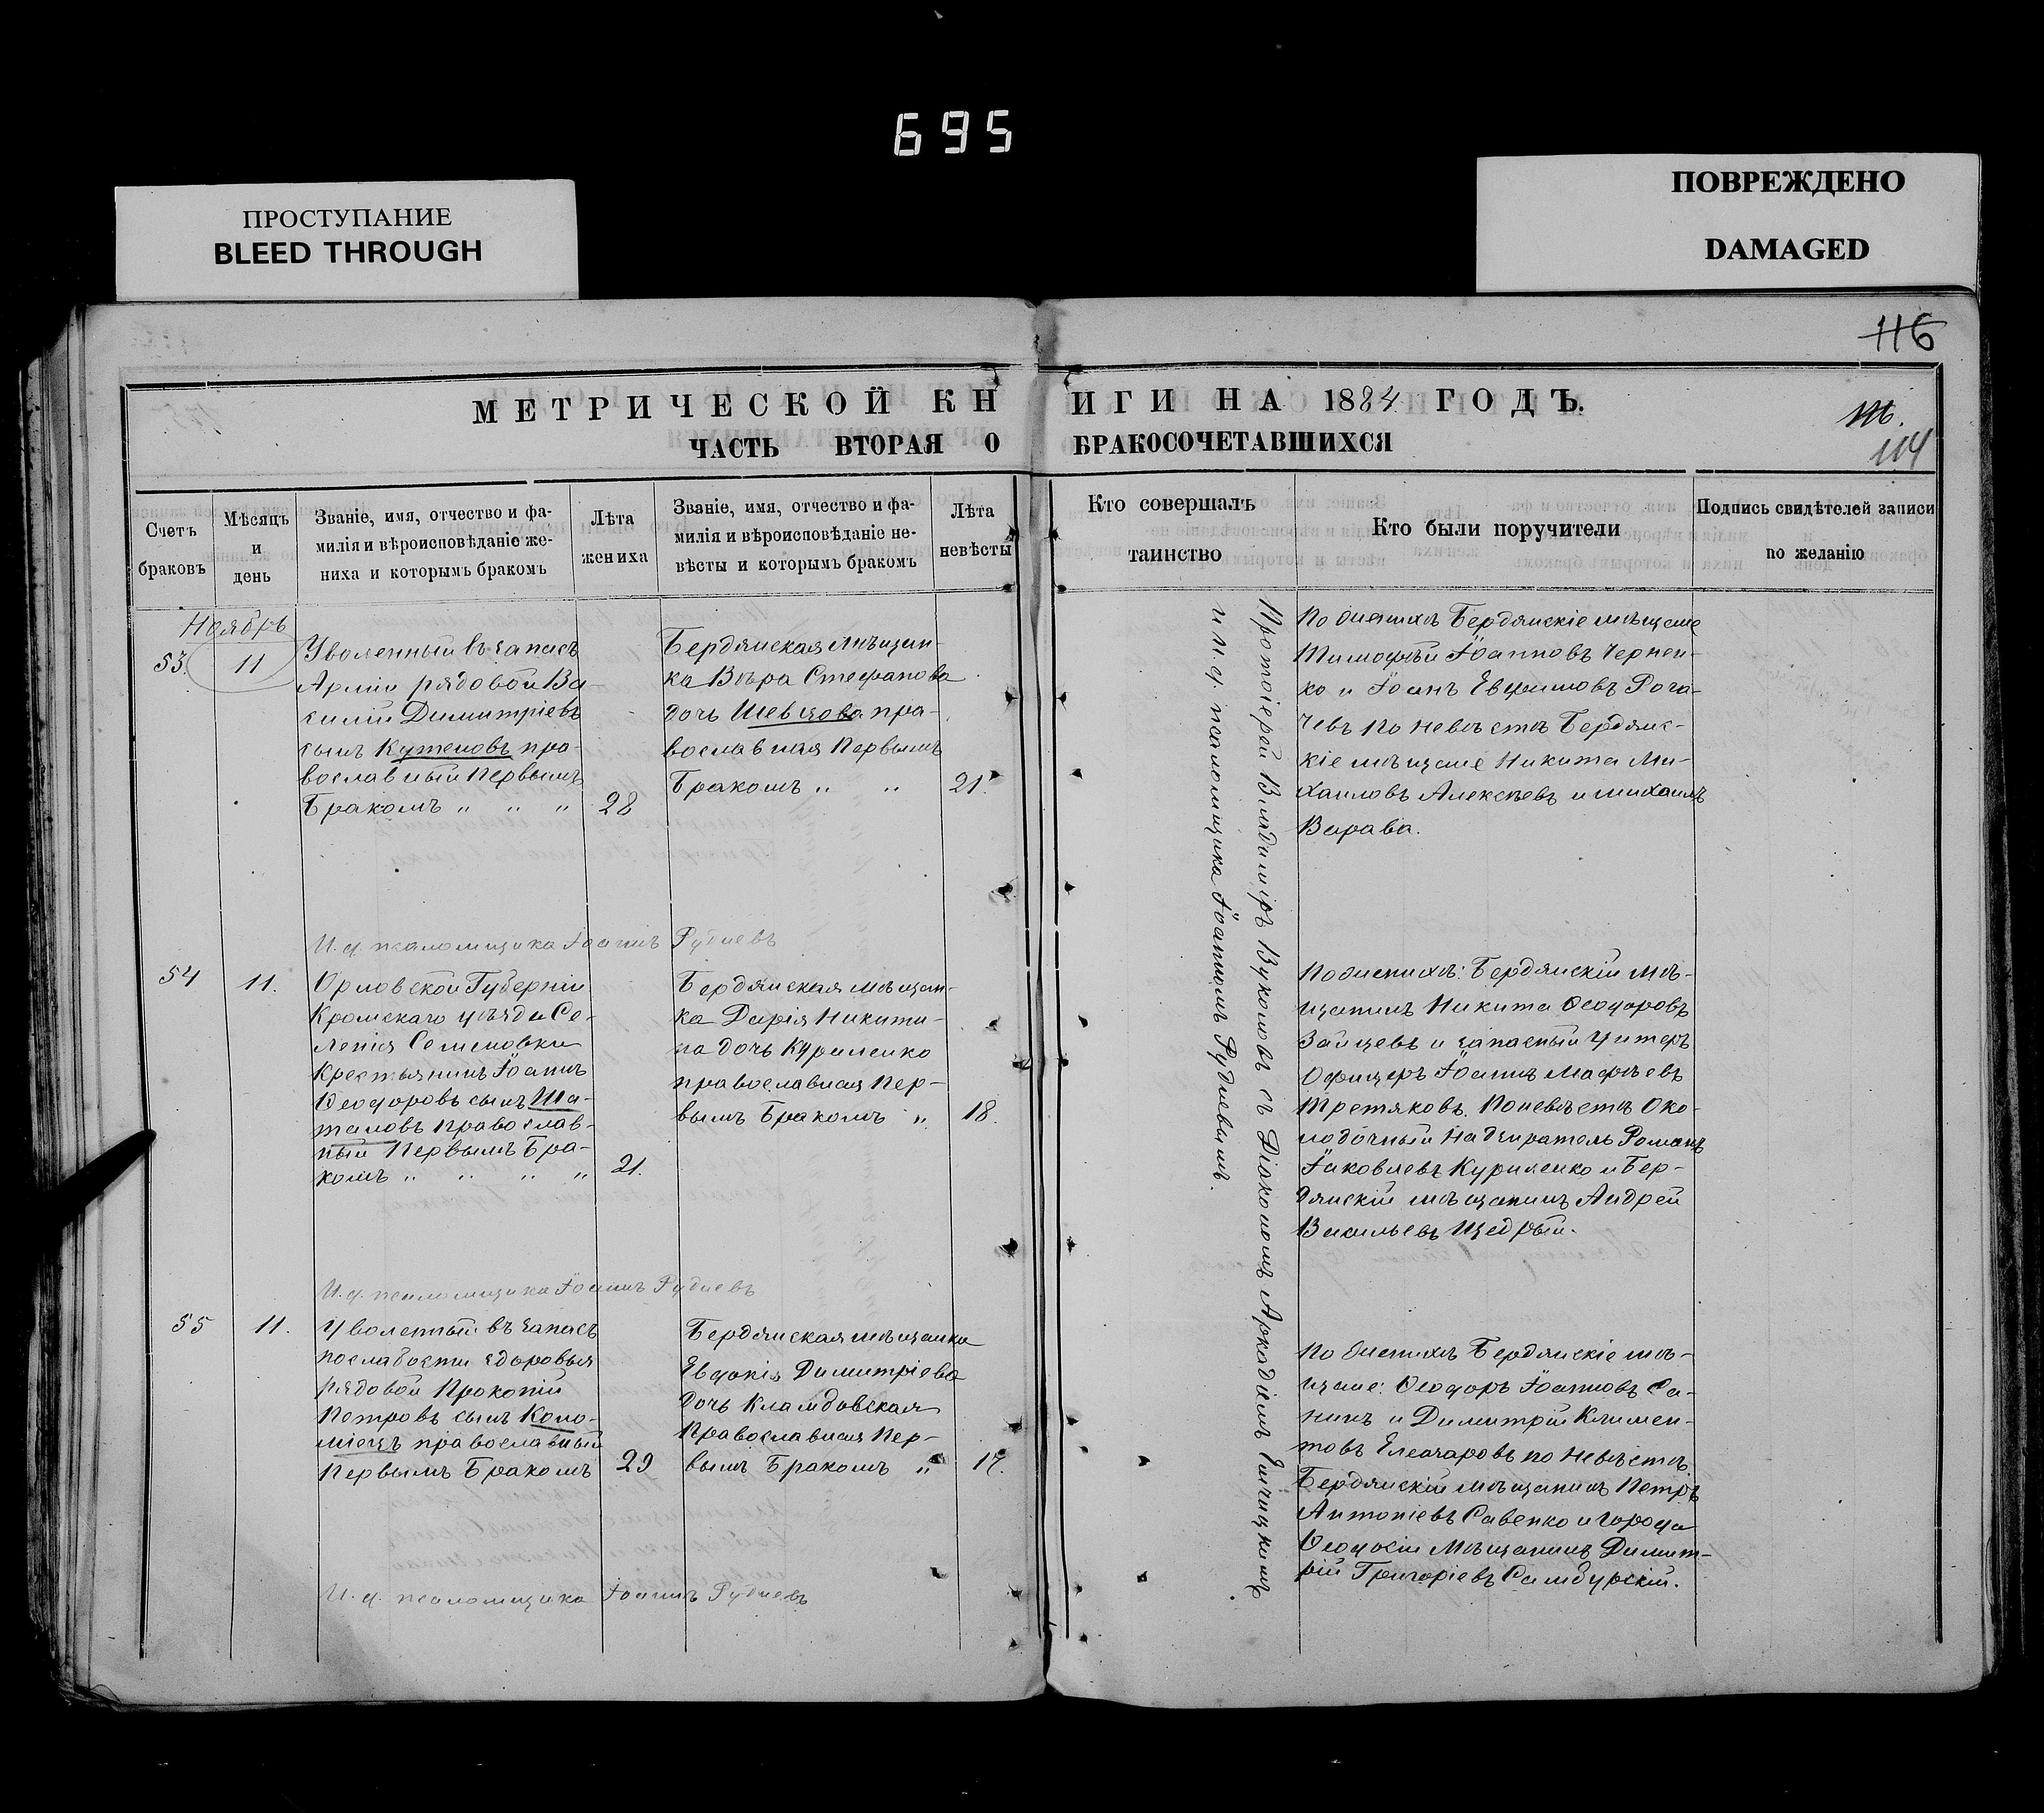 695
ПРОСТУПАНИЕ
BLEED THROUGH
ПОВРЕЖДЕНО
DAMAGED
116
МЕТРИЧЕСКОЙ КНИГИ НА 1884 ГОДЪ.
ЧАСТЬ ВТОРАЯ О БРАКОСОЧЕТАВШИХСЯ
114
Счетъ браковъ
Мѣсяцъ и день
Званіе, имя, отчество и фа-
милія и вѣроисповѣданіе же-
ниха и которымъ бракомъ
Лѣта жениха
Званіе, имя, отчество и фа-
милія и вѣроисповѣданіе не-
вѣсты и которымъ бракомъ
Лѣта невѣсты
Кто совершалъ
таинство
Кто были поручители
Подпись свидѣтелей записи
по желанію
Ноябрь
53. 11
Уволенный въ запасъ
Арміи рядовой Ва-
силій Димитріевъ
сынъ Кутеповъ пра-
вославный Первымъ
Бракомъ „ „ „ 28
Бердянская мѣщан-
ка Вѣра Стефанова
дочь Шевцова пра-
вославная Первымъ
Бракомъ „ „ 21.
Протоіерей Владиміръ Вуколовъ съ Діакономъ Аркадіемъ
и И. д. псаломщика Іоанномъ Рудневымъ.
По женихѣ Бердянскіе мѣщане
Тимофей Іоанновъ Чернен-
ко и Іоанъ Евфимовъ Рога-
чевъ по невѣстѣ Бердянс-
кіе мѣщане Никита Ми-
хаиловъ Алексѣевъ и Михаилъ
Варава.
И. д. псаломщика Іоаннъ Рудневъ
54 11.
Орловской Губерніи
Кромскаго уѣзда Се-
ленія Семеновки
Крестьянинъ Іоаннъ
Ѳеодоровъ сынъ Ша-
таловъ православ-
ный Первымъ Бра-
комъ „ „ „ „ 21.
Бердянская мѣщан-
ка Дарія Никити-
на дочь Куриленко
православная Пер-
вымъ Бракомъ „ 18.
По женихѣ: Бердянскій мѣ-
щанинъ Никита Ѳеодоровъ
Зайцевъ и запасный Унтеръ
Офицеръ Іоаннъ Мафѣевъ
Третяковъ. По невѣстѣ Око-
лодочный Надзиратель Романъ
Іаковлевъ Куриленко и Бер-
дянскій мѣщанинъ Андрей
Васильевъ Щедрый.
И. д. псаломщика Іоаннъ Рудневъ
55 11.
Уволенный въ запасъ
по слабости здоровья
рядовой Прокопій
Петровъ сынъ Коло-
міецъ православный
Первымъ Бракомъ 29
Бердянская мѣщанка
Евдокія Димитріева
дочь
Православная Пер-
вымъ Бракомъ „ 17.
По женихѣ Бердянскіе мѣ-
щане: Ѳеодоръ Іоанновъ Са-
нинъ и Димитрій Климен-
товъ Елеазаровъ по невѣстѣ
Бердянскій мѣщанинъ Петръ
Антоніевъ Савенко и города
Ѳеодосіи Мѣщанинъ Димит-
рій Григоріевъ Самбурскій.
И. д. псаломщика Іоаннъ Рудневъ